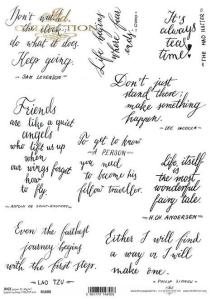 Don't watch
the clock;
do what it does.
Keep going.
SAM LEVENSON
Life begins
where fear
ends.
OSHO
It's
always
tea
time!
THE MAD HATTER
Don't just
stand there;
make something
happen.
LEE IACOCCA
Friends
are like a quiet
angels
who lift us up
when
our wings forget
how
to fly.
ANTOIN DE SAINT-EXUPERY
To get to know
A PERSON
you need
to become his
fellow traveller.
Life itself
is the most
wonderful
fairy tale
H.CH. ANDERSEN
Even the farthest
journey begins
with the first step.
LAO TZU
Either I will find
a way or I will
make one.
PHILIP SIDNEY